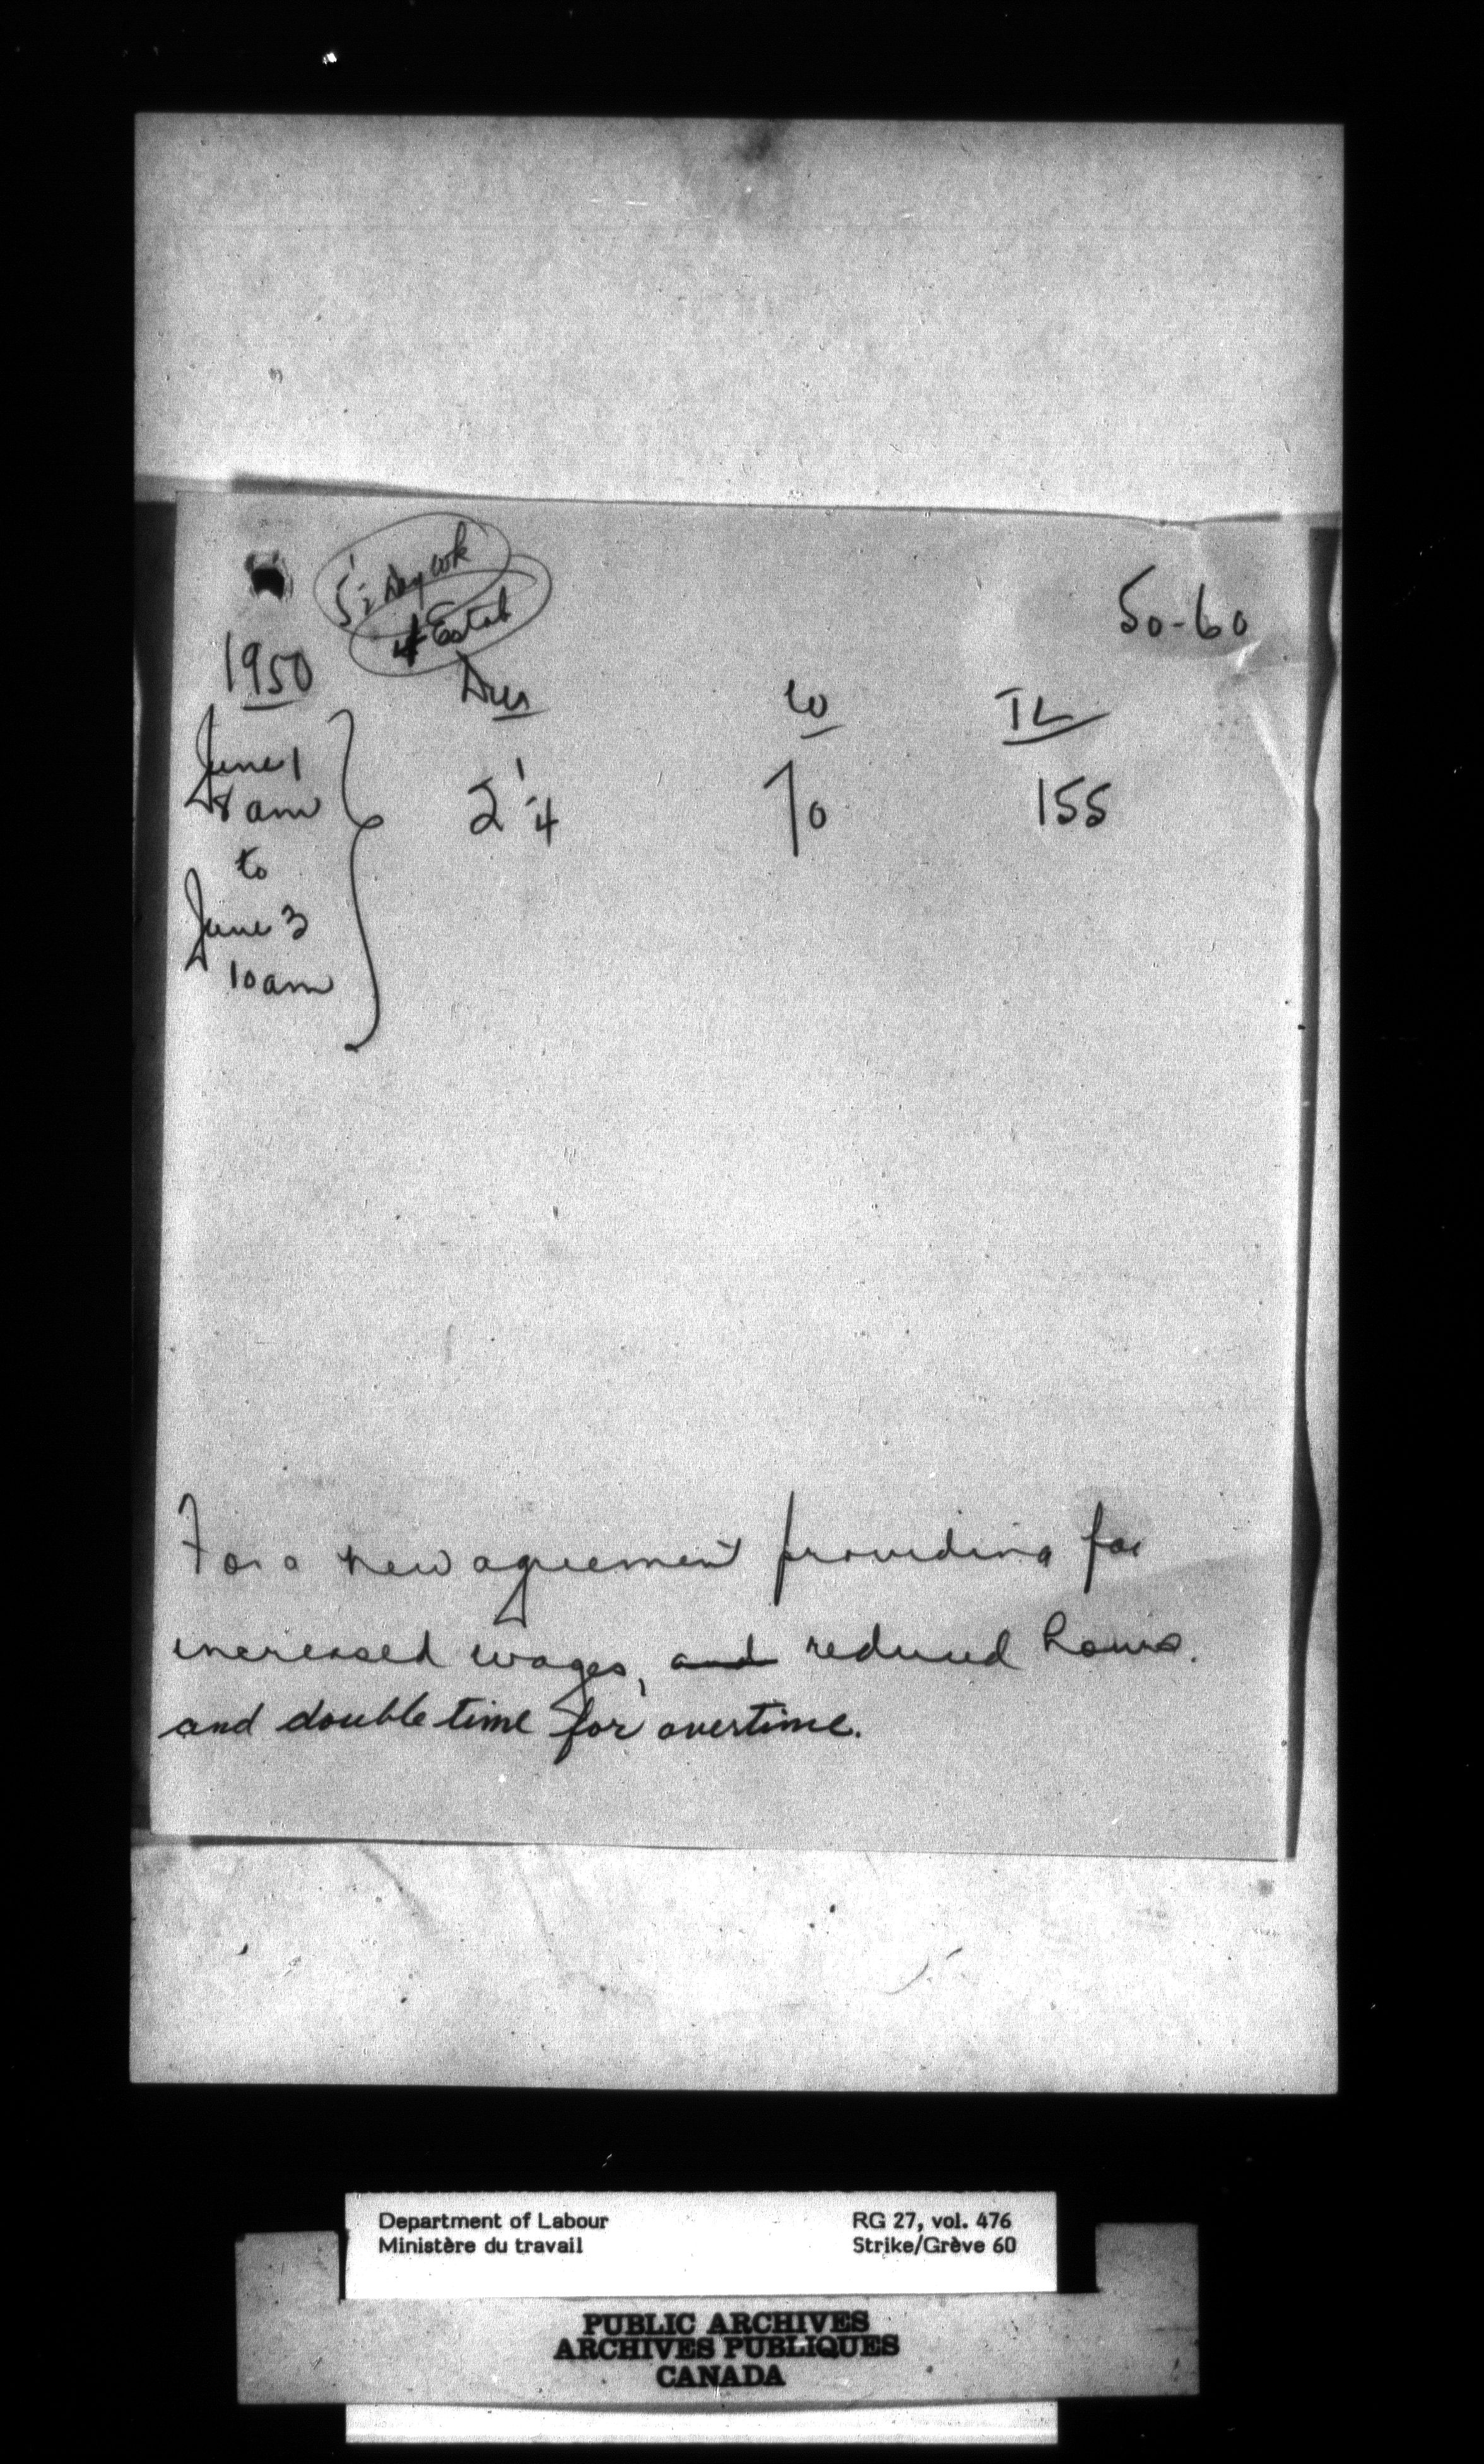 5 1/2 Day wk
4 Estab
50-60
1950
Durs W TL
June 1
8 am
to
June 3
10 am
2 1/4 70 155
For a new agreement providing for
increased wages, and reduced hours.
and double time for overtime.
Department of Labour RG 27, vol. 476
Ministère du travail Strike/Grève 60
PUBLIC ARCHIVES
ARCHIVES PUBLIQUES
CANADA